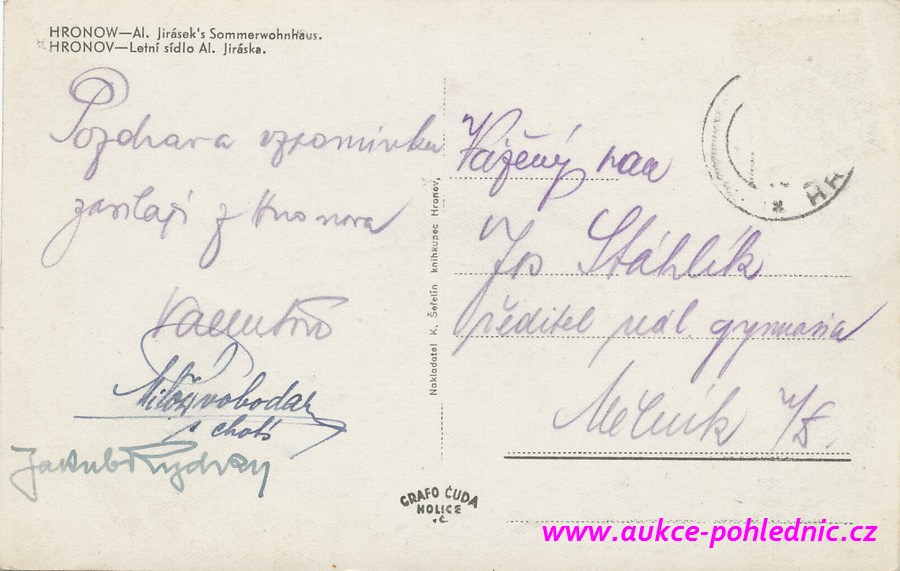 HRONOW—Al. Jirásek's Sommerwohnhaus.
HRONOV—Letní sídlo Al. Jiráska.
Pozdrav a vzpomínku
zasílají z Hronova
Valentová
Miloš Svoboda
s chotí
Jakub
Nakladatel K. Šefelín knihkupec Hronov.
Vážený pan
Jos Stáhlík
ředitel reál. gymnasia
Mělník
HR
GRAFO ČUDA
HOLICE
v Č.
www.aukce-pohlednic.cz